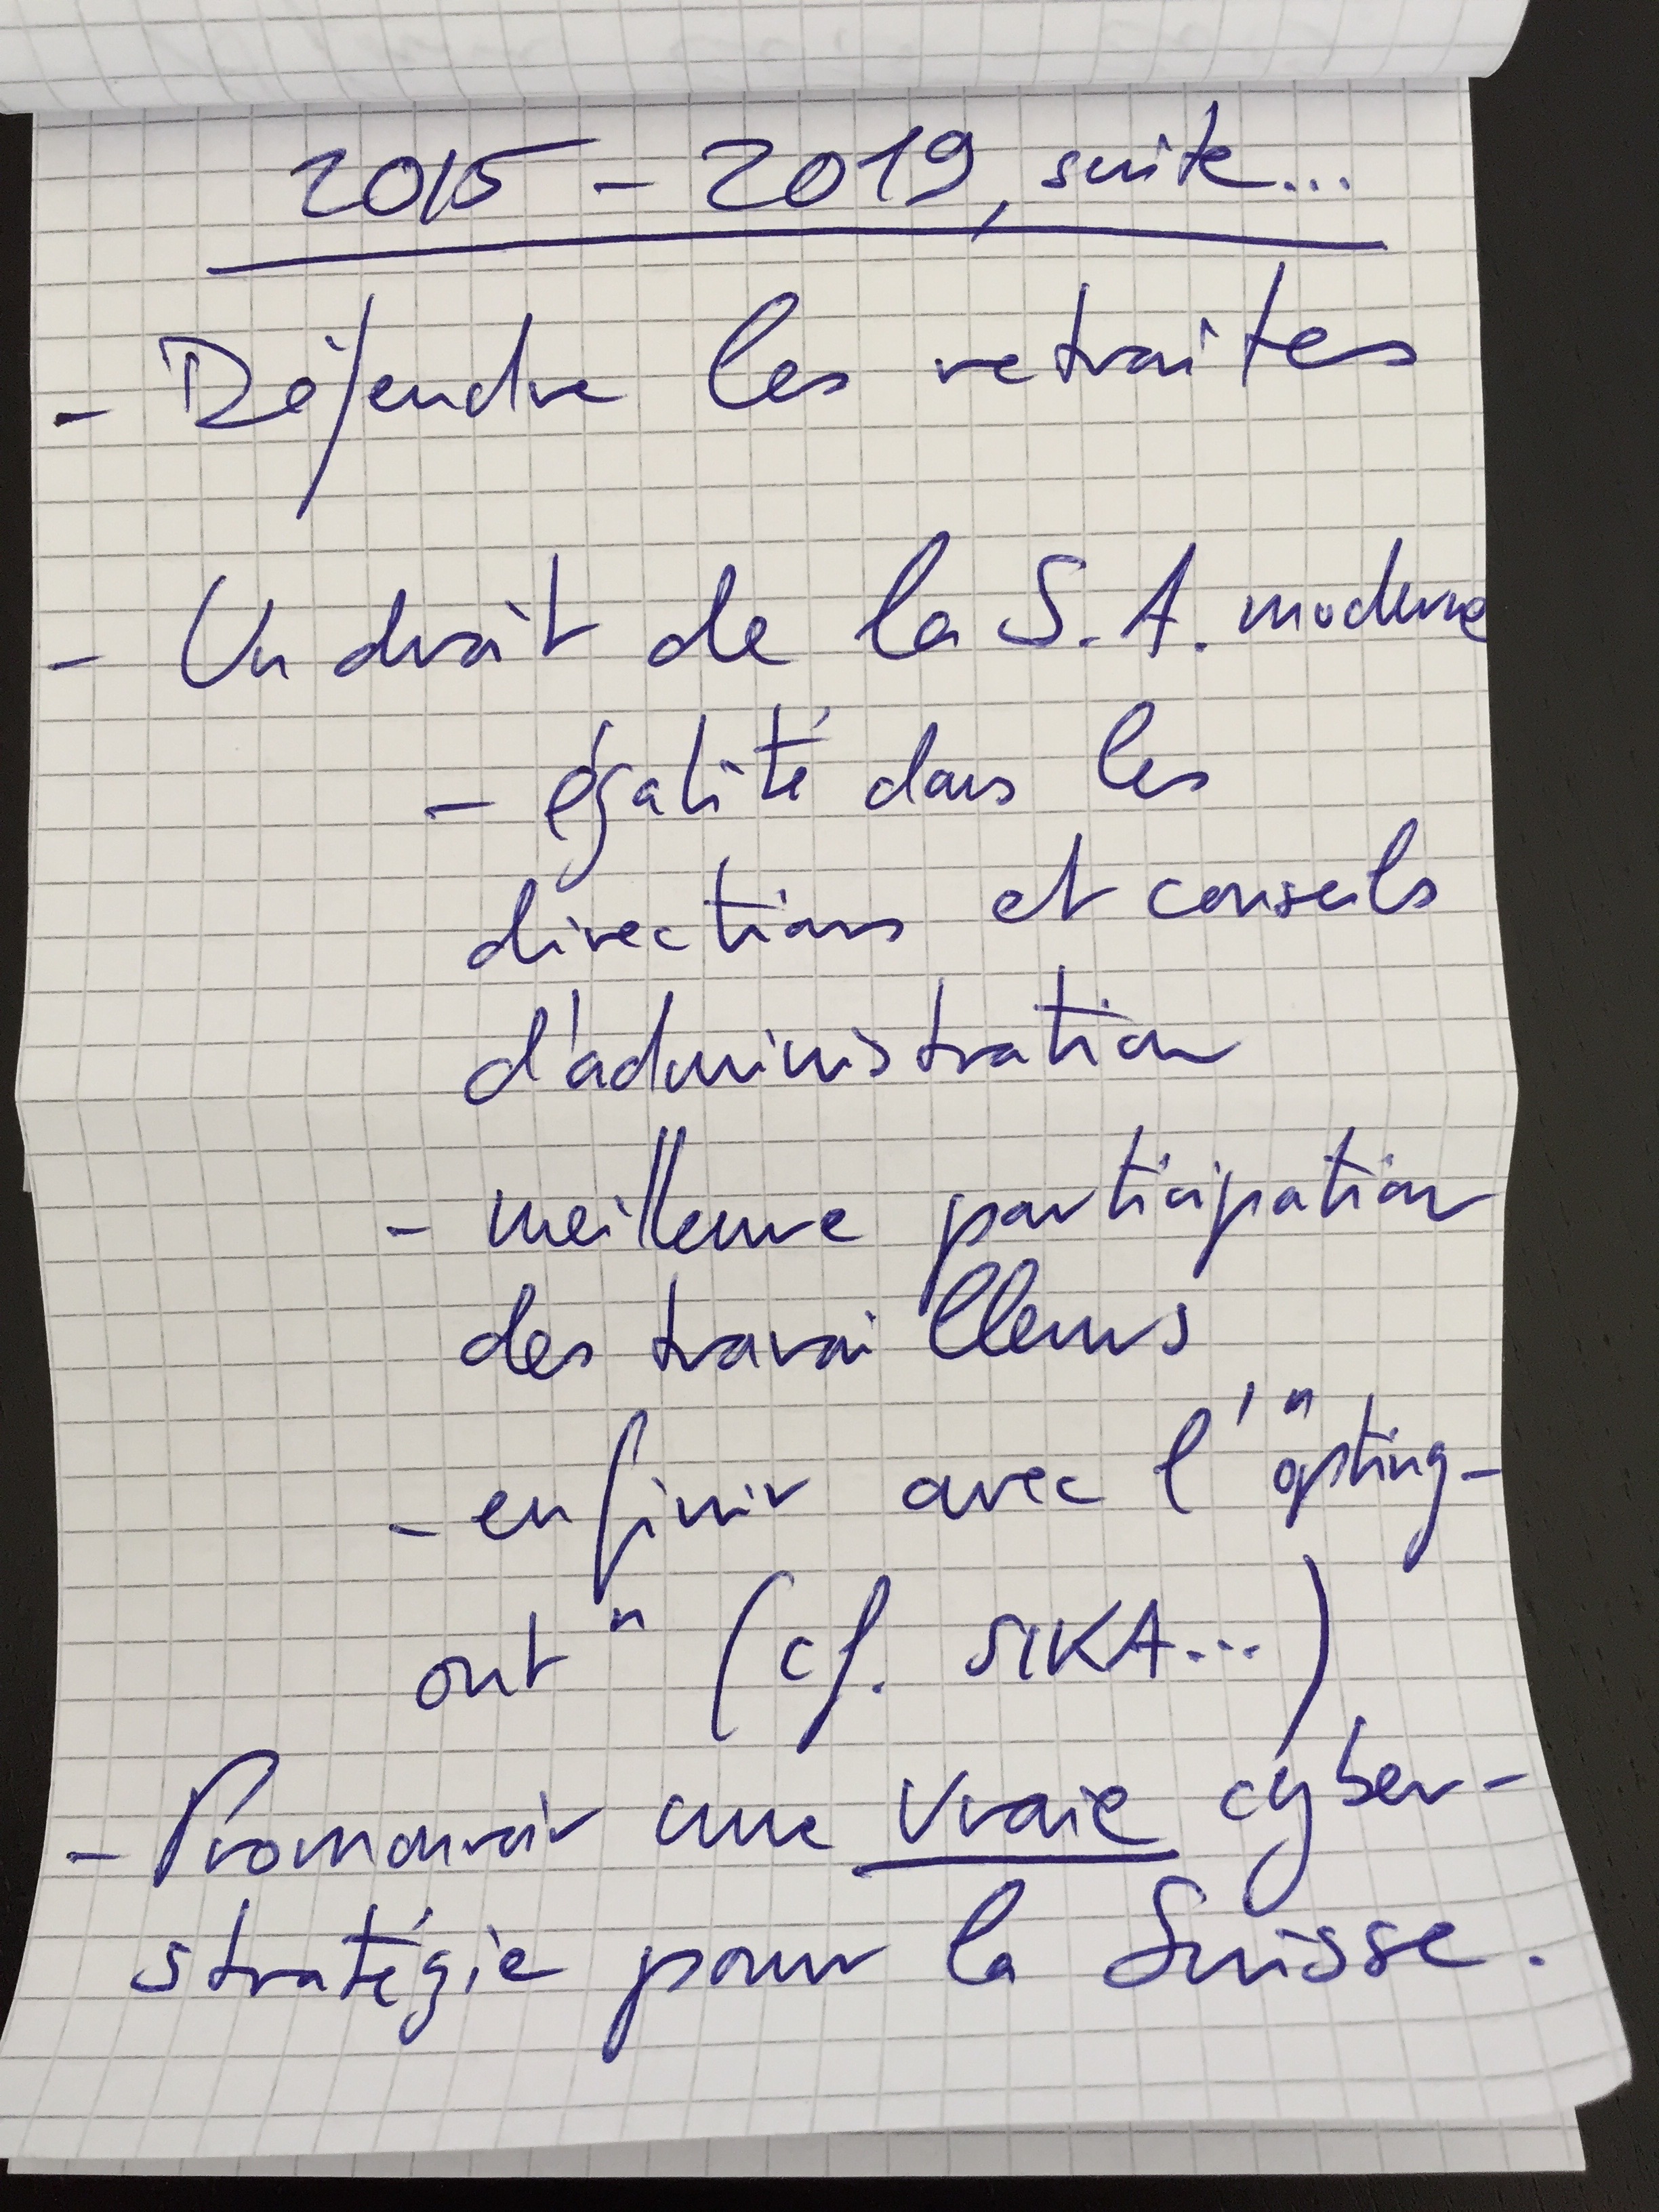 2015 - 2019, suite...
- Défendre les retraites
- Un droit de la S.A. moderne
- égalité dans les
directions et conseils
d'administration
- meilleure participation
des travailleurs
- en finir avec l'"opting-
out" (cf. SIKA...)
- Promouvoir une vraie cyber-
stratégie pour la Suisse.